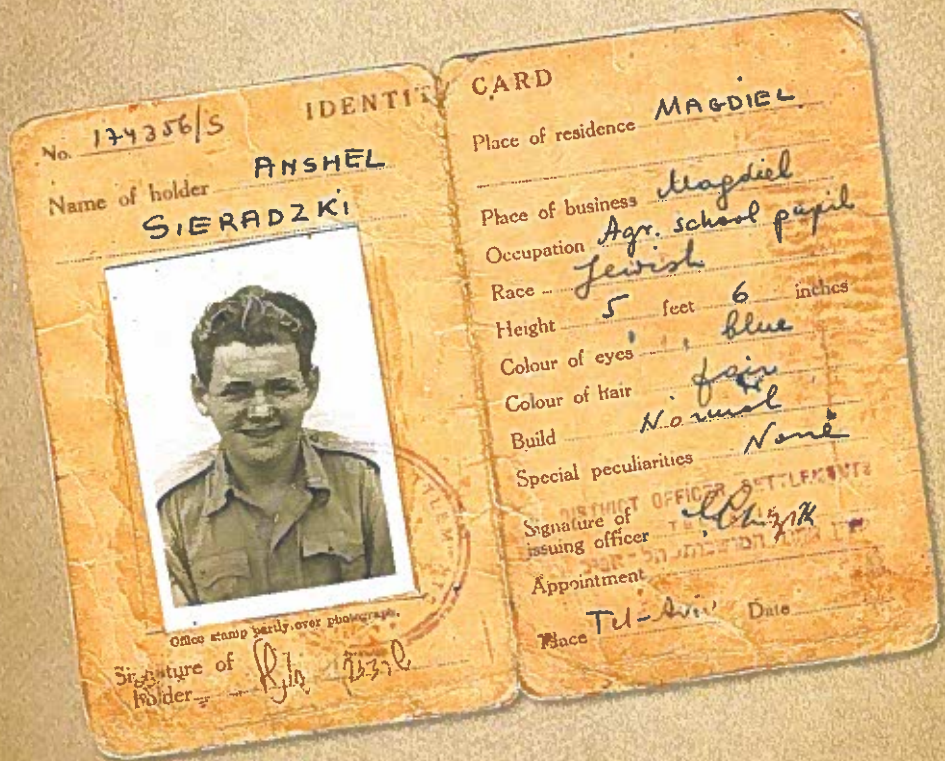 IDENTITY CARD
No. 174356/S
Name of holder ANSHEL
SIERADZKI
Office stamp partly over photograph.
Signature of
holder
Place of residence MAGDIEL
Place of business Magdiel
Occupation Agr. school pupil
Race Jewish
Height 5 feet 6 inches
Colour of eyes blue
Colour of hair fair
Build Normal
Special peculiarities None
DISTRICT OFFICER SETTLEMENTS
Signature of
issuing officer
Appointment
Place Tel-Aviv Date